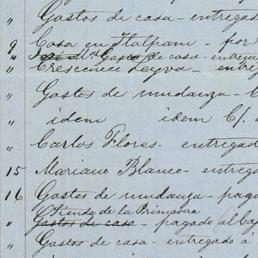 " Gastos de casa - entregad
9 Casa en Tlalpam - por
" Gastos de casa - entreg
" Crescencio Leyva - entre
" Gastos de mudanza -
" idem idem C/.
" Carlos Flores - entregad
15 Mariano Blanco - entrega
16 Gastos de mudanza - pag
Tienda de la Primavera
" Gastos de casa - pagado al
" Gastos de casa - entregado á